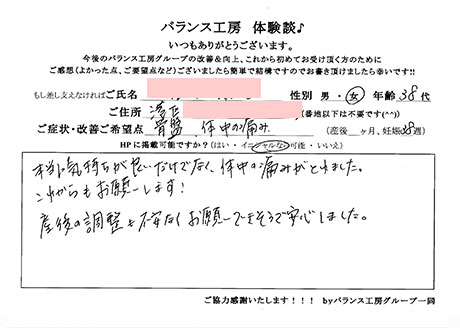 バランス工房 体験談♪
いつもありがとうございます。
今後のバランス工房グループの改善&向上、これから初めてお受け頂く方のために
ご感想(よかった点、ご要望点など)ございましたら簡単で結構ですのでお書き頂けましたら幸いです!!
もし差し支えなければご氏名 性別 男・女 年齢 38代
ご住所 (番地以下は不要です(^^))
ご症状・改善ご希望点 骨盤、体中の痛み (産後 ヶ月、妊娠38週)
HPに掲載可能ですか?(はい・イニシャルなら可能・いいえ)
本当に気持ちが良いだけでなく、体中の痛みがとれました。
これからもお願いします!
産後の調整も不安なくお願いできそうで安心しました。
ご協力感謝いたします!!! byバランス工房グループ一同